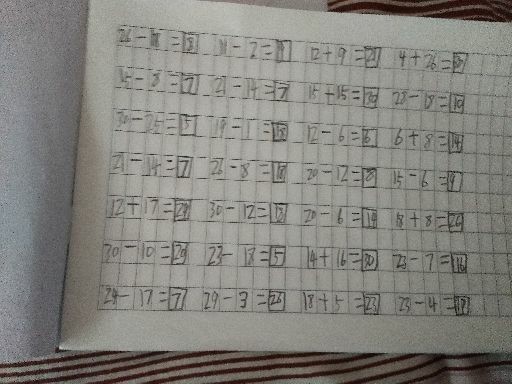 26-18=8 11-2=9 12+9=21 4+26=30
15-8=7 21-14=7 15+15=30 28-18=10
30-25=5 19-1=18 12-6=6 6+8=14
21-14=7 26-8=18 20-12=8 15-6=9
12+17=29 30-12=18 20-6=14 18+8=26
30-10=20 23-18=5 14+16=30 23-7=16
24-17=7 29-3=26 18+5=23 23-4=19